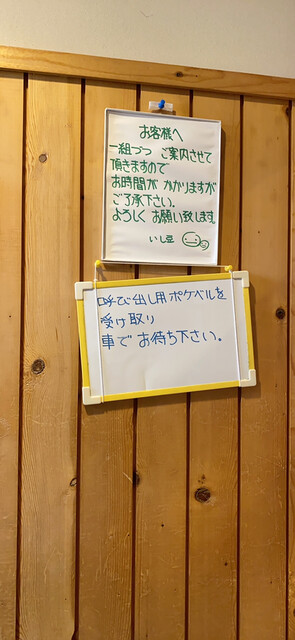 お客様へ
一組づつ ご案内させて
頂きますので
お時間が かかりますが
ご了承下さい。
よろしく お願い致します。
いし豆
呼び出し用ポケベルを
受け取り
車で お待ち下さい。